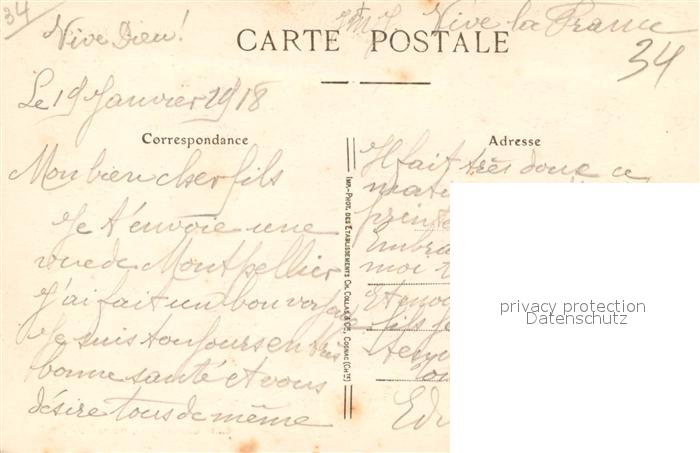 34
Vive Dieu!
Vive la France
CARTE POSTALE
34
Le 19 Janvier 1918
Correspondance
Adresse
Mon bien cher fils
Je t'envoie une
vue de Montpellier
J'ai fait un bon voyage
Je suis toujours en très
bonne santé et vous
désire tous de même
IMP.-PHOT. DES ETABLISSEMENTS CH. COLLAS & Cie, COGNAC (CHte)
Il fait très doux ce
Embra
moi
fils
Ed
privacy protection
Datenschutz